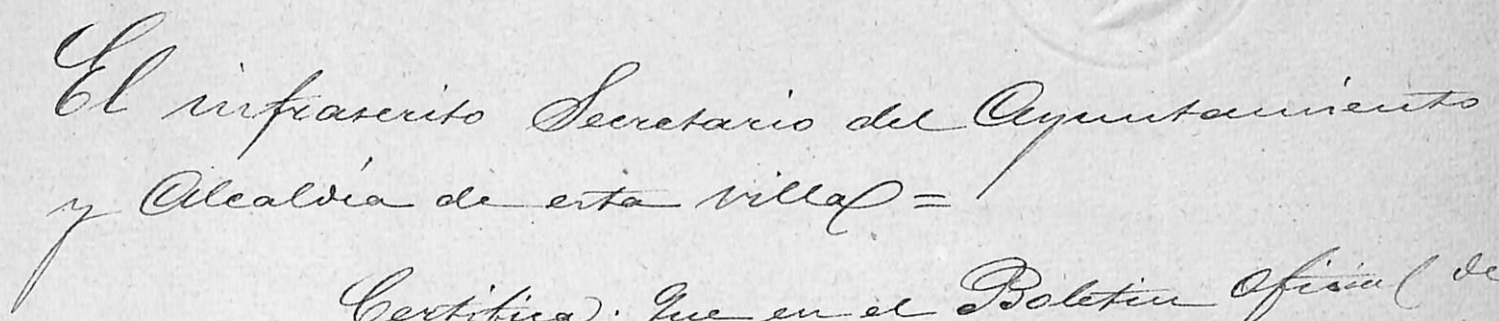 El infrascrito Secretario del Ayuntamiento
y Alcaldía de esta villa =
Certifica: Que en el Boletin Oficial de